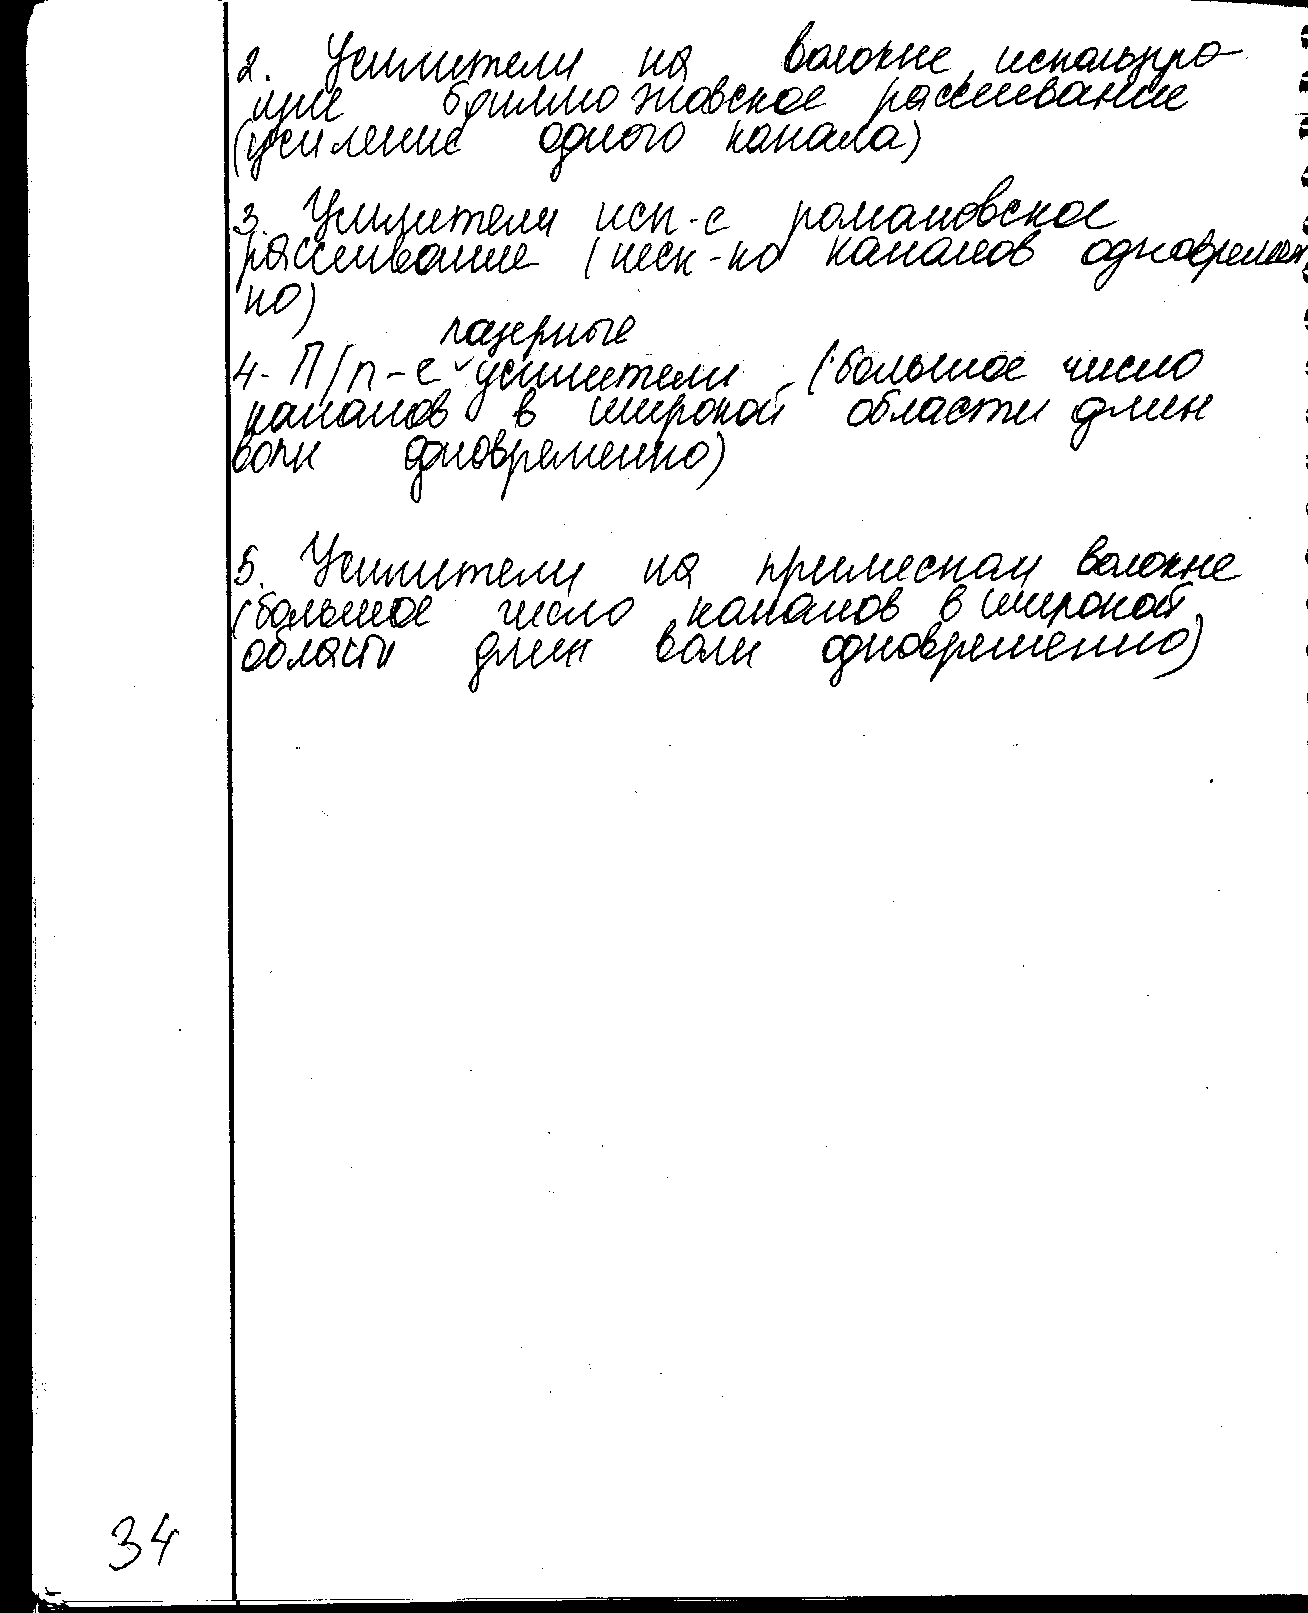 2. Усилители на волокне, использую-
щие бриллюэновское рассеивание
(усиление одного канала)
3. Усилители исп-е романовское
рассеивание (неск-ко каналов одновремен
но)
лазерные
4. П/п-е усилители (большое число
каналов в широкой области длин
волн одновременно)
5. Усилители на примесном волокне
(большое число каналов в широкой
области длин волн одновременно)
34